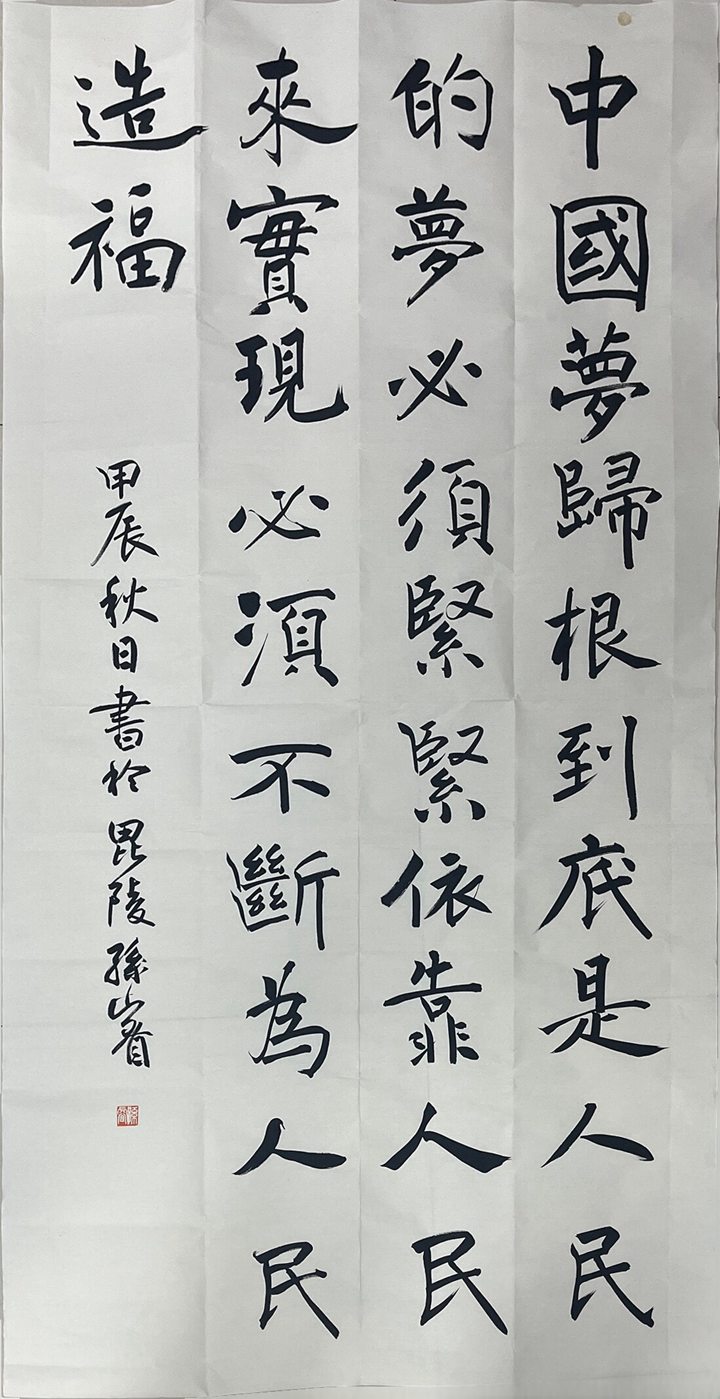 中國夢歸根到底是人民
的夢必須緊緊依靠人民
來實現必須不斷為人民
造福
甲辰秋日書於毘陵孫